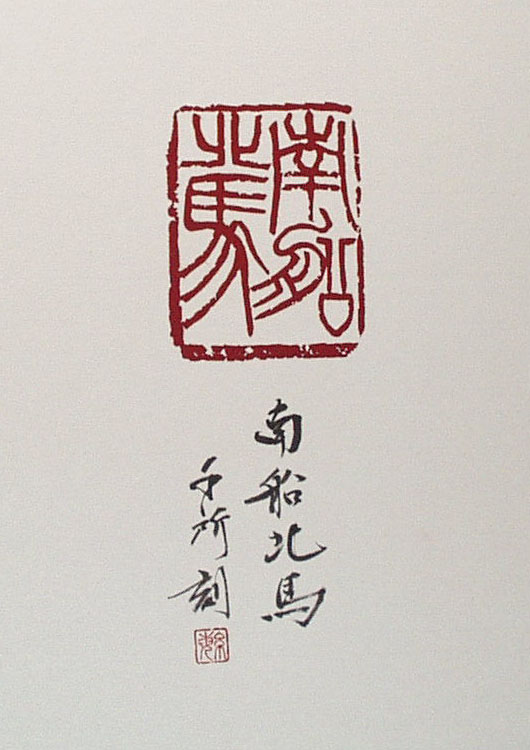 南船
北馬
南船北馬
所刻